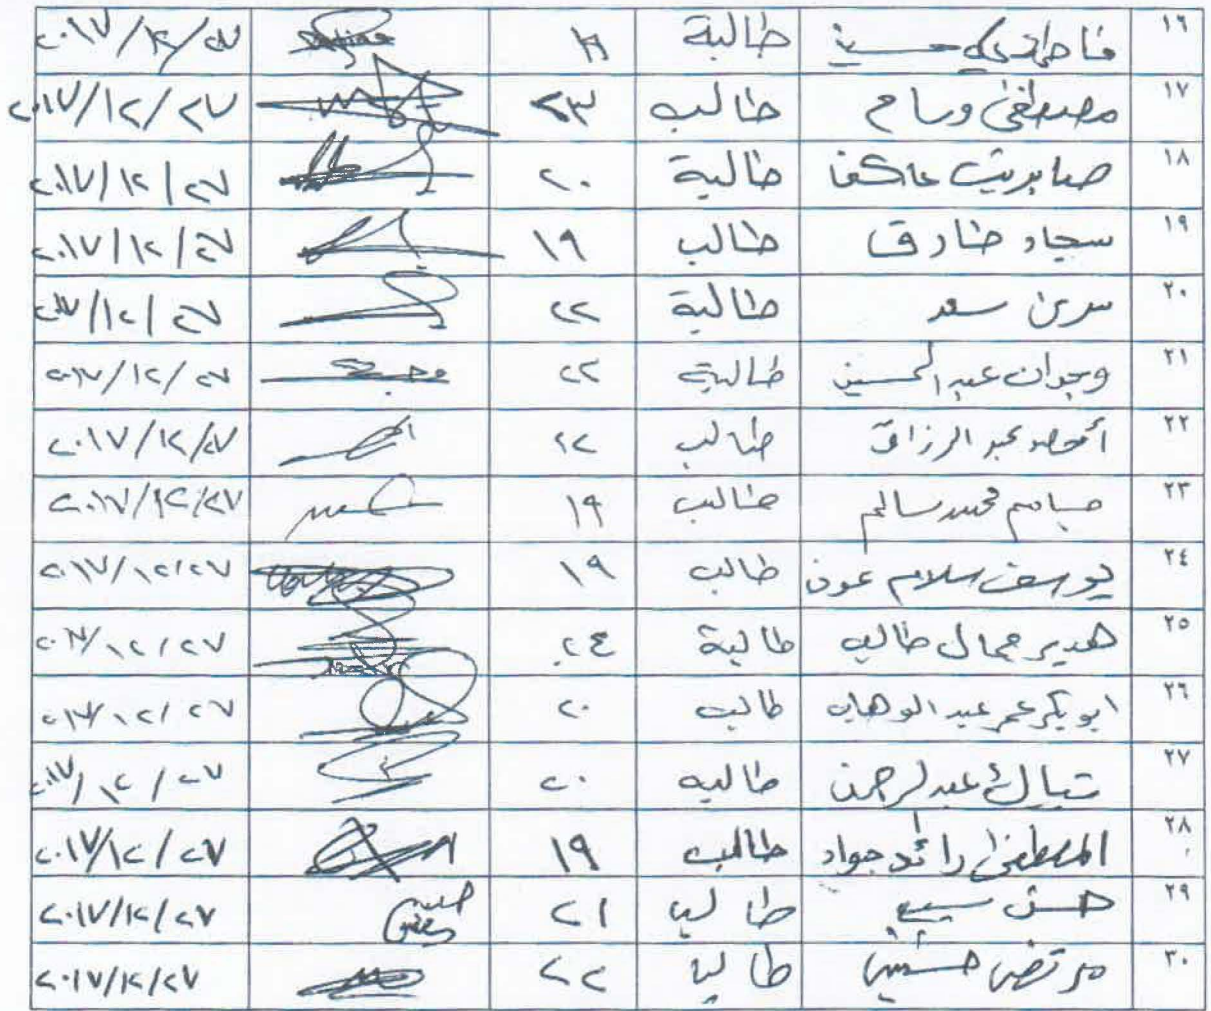 ١٦ فاطمة علي حسين طالبة ١٩ ٢٠١٧/١٢/٢٧
١٧ مصطفى وسام طالب ٢٣ ٢٠١٧/١٢/٢٧
١٨ صابرين عاكف طالبة ٢٠ ٢٠١٧/١٢/٢٧
١٩ سجاد طارق طالب ١٩ ٢٠١٧/١٢/٢٧
٢٠ سرى سعد طالبة ٢٢ ٢٠١٧/١٢/٢٧
٢١ وجدان عبد الحسين طالبة ٢٢ ٢٠١٧/١٢/٢٧
٢٢ أحمد عبد الرزاق طالب ١٢ ٢٠١٧/١٢/٢٧
٢٣ محمد سالم طالب ١٩ ٢٠١٧/١٢/٢٧
٢٤ يوسف سلام عون طالب ١٩ ٢٠١٧/١٢/٢٧
٢٥ هدير جمال طالب طالبة ٢٤ ٢٠١٧/١٢/٢٧
٢٦ ابو بكر عمر عبد الوهاب طالب ٢٠ ٢٠١٧/١٢/٢٧
٢٧ تبارك عبد الرحمن طالبه ٢٠ ٢٠١٧/١٢/٢٧
٢٨ المصطفى رائد جواد طالب ١٩ ٢٠١٧/١٢/٢٧
٢٩ حسن طالب ٢١ ٢٠١٧/١٢/٢٧
٣٠ مرتضى حسين طالب ٢٢ ٢٠١٧/١٢/٢٧